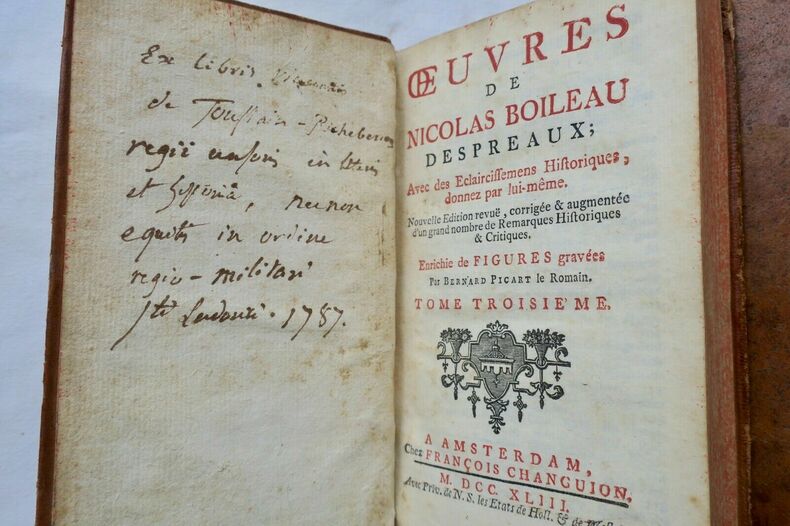 Ex libris
de Toustain-Richebourg
regii censoris in litteris
et historiâ, necnon
equitis in ordine
regio-militari
Sti Ludovici. 1787.
ŒUVRES
DE
NICOLAS BOILEAU
DESPREAUX;
Avec des Eclairciſſemens Hiſtoriques,
donnez par lui-même.
Nouvelle Edition revuë, corrigée & augmentée
d'un grand nombre de Remarques Hiſtoriques
& Critiques.
Enrichie de FIGURES gravées
Par BERNARD PICART le Romain.
TOME TROISIE'ME.
A AMSTERDAM,
Chez FRANÇOIS CHANGUION.
M. DCC. XLIII.
Avec Priv. de N. S. les Etats de Holl. & de